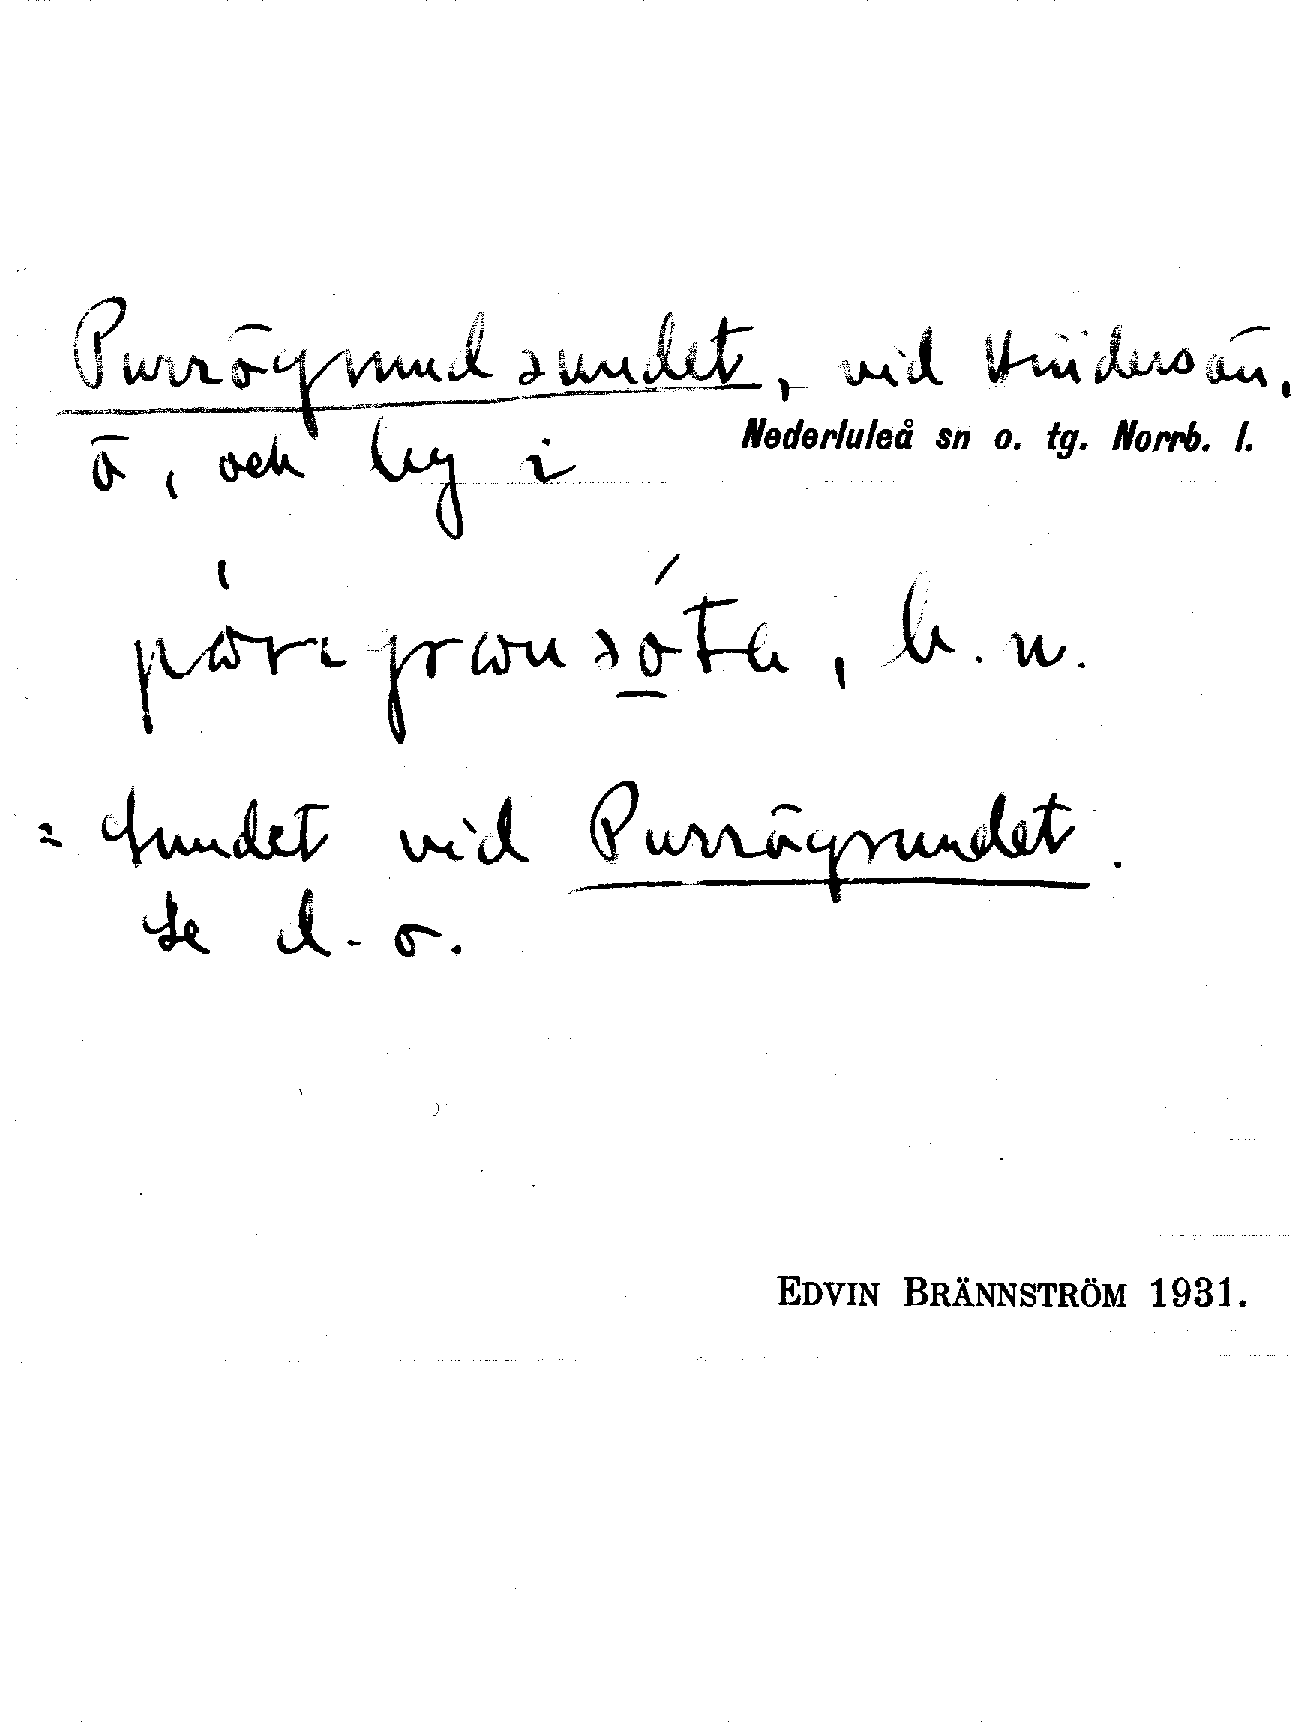 Purrögrundsundet, vid Hindersön,
ö, och by i Nederluleå sn o. tg. Norrb. l.
b. n.
= Sundet vid Purrögrundet.
Se d. o.
EDVIN BRÄNNSTRÖM 1931.